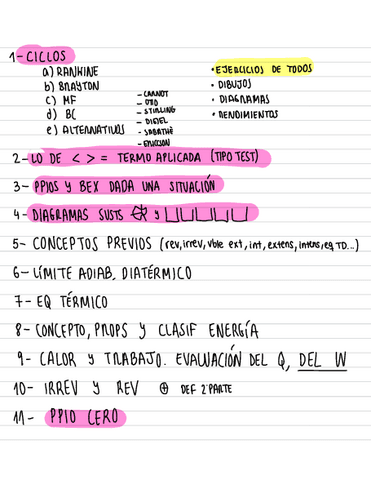 1- CICLOS
a) RANKINE
b) BRAYTON
c) MF
d) BC
e) ALTERNATIVOS
- CARNOT
- OTTO
- STIRLING
- DIESEL
- SABATHÉ
- ERICSON
• EJERCICIOS DE TODOS
• DIBUJOS
• DIAGRAMAS
• RENDIMIENTOS
2- LO DE < > = TERMO APLICADA (TIPO TEST)
3- PPIOS Y BEX DADA UNA SITUACIÓN
4- DIAGRAMAS SUSTS Y
5- CONCEPTOS PREVIOS (rev, irrev, vble ext, int, extens, intens, eq TD...)
6- LÍMITE ADIAB, DIATÉRMICO
7- EQ TÉRMICO
8- CONCEPTO, PROPS Y CLASIF ENERGÍA
9- CALOR Y TRABAJO. EVALUACIÓN DEL Q, DEL W
10- IRREV Y REV ⊕ DEF 2ªPARTE
11- PPIO CERO